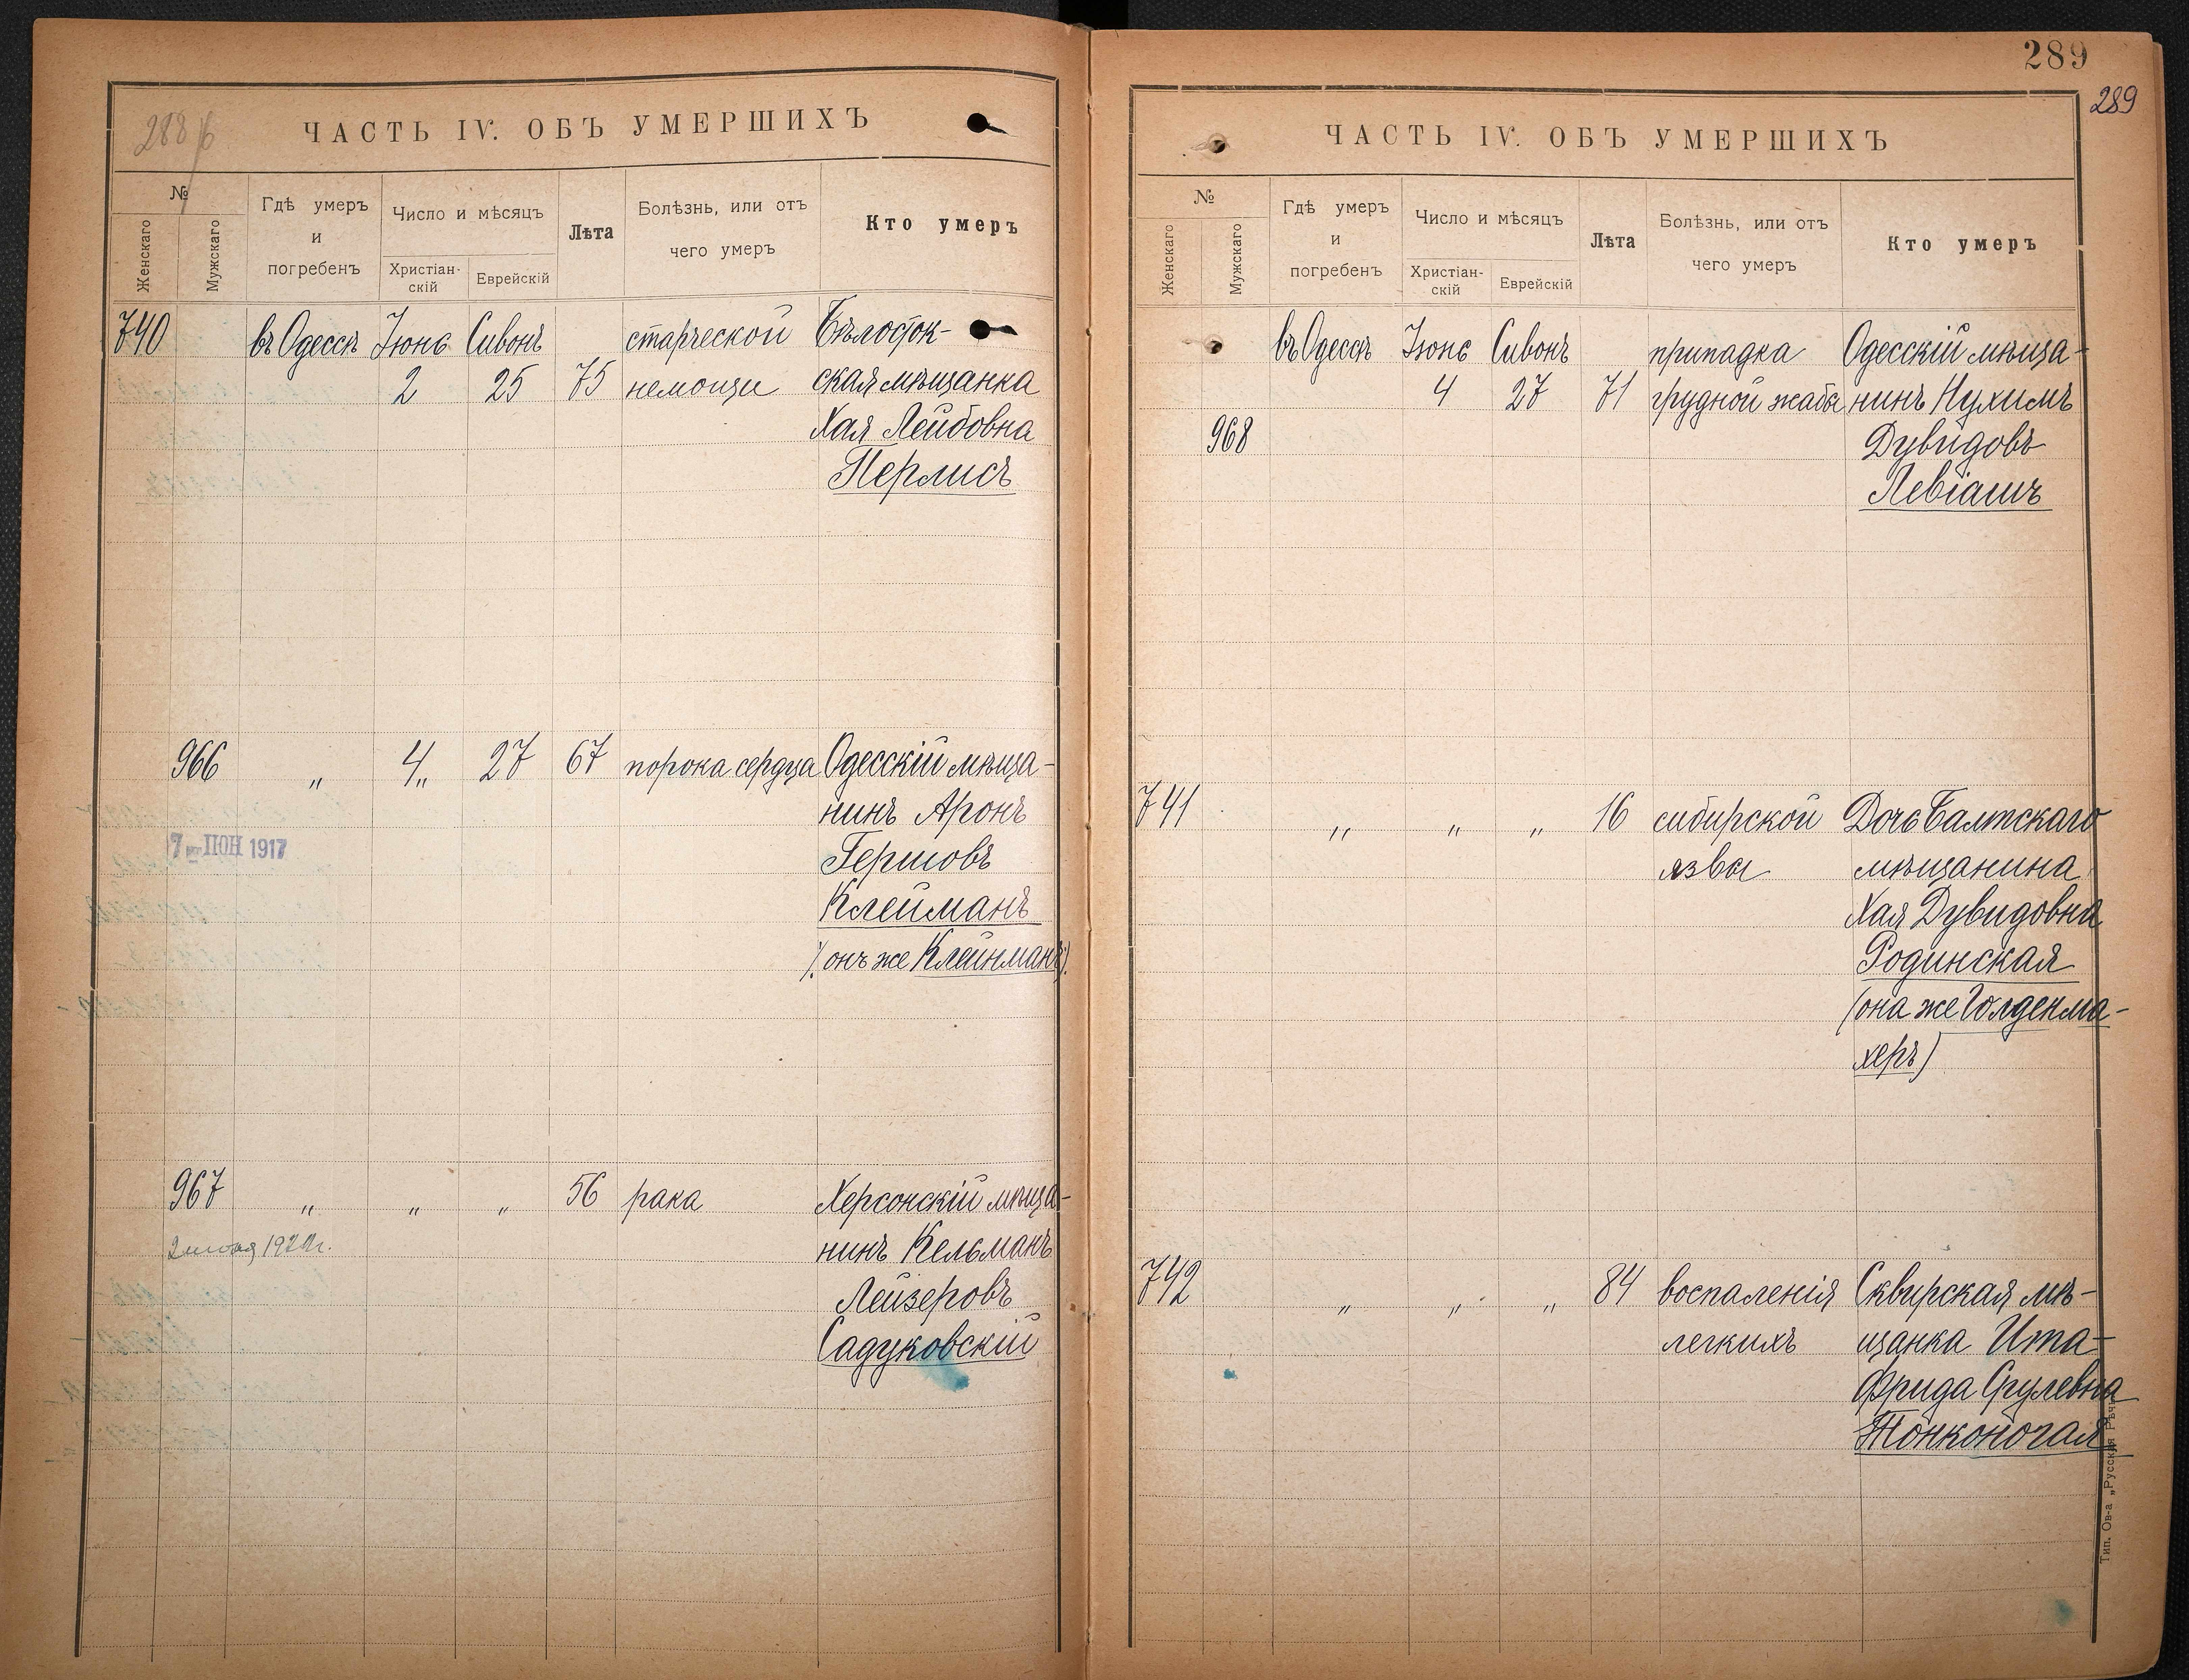 288 б
ЧАСТЬ IV. ОБЪ УМЕРШИХЪ
№
Женскаго
Мужскаго
Гдѣ умеръ
и
погребенъ
Число и мѣсяцъ
Христіан-
скій
Еврейскій
Лѣта
Болѣзнь, или отъ
чего умеръ
Кто умеръ
740 въ Одессѣ Іюнь Сивонъ старческой Бѣлосток-
2 25 75 немощи ская мѣщанка
Хая Лейбовна
Перлисъ
966 „ 4„ 27 67 порока сердца Одесскій мѣща-
нинъ Аронъ
7 ІЮН 1917
Гершовъ
Клейманъ
(онъ же Клейнманъ).
967 „ „ „ 56 рака Херсонскій мѣща-
нинъ Кельманъ
Лейзеровъ
Садуковскій
289
289
ЧАСТЬ IV. ОБЪ УМЕРШИХЪ
№
Женскаго
Мужскаго
Гдѣ умеръ
и
погребенъ
Число и мѣсяцъ
Христіан-
скій
Еврейскій
Лѣта
Болѣзнь, или отъ
чего умеръ
Кто умеръ
въ Одессѣ Іюнь Сивонъ припадка Одесскій мѣща-
4 27 71 грудной жабы нинъ Нухимъ
968 Дувидовъ
Левіашъ
741 „ „ „ 16 сибирской Дочь Балтскаго
язвы мѣщанина
Хая Дувидовна
Родинская
(она же Голденма-
херъ)
742 „ „ „ 84 воспаленія Сквирская мѣ-
легкихъ щанка Ита-
Фрида Срулевна
Тонконогая
Тип. Ов-а „Русская Рѣчь"